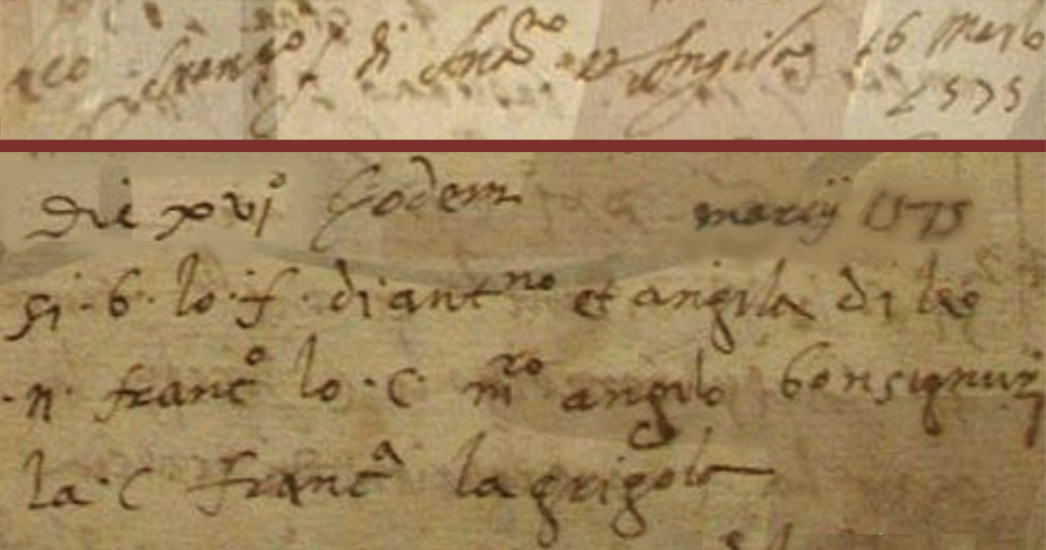 leo franco f di Anto et Angila 16 Marso
1575
Die xvjo Eodem marcij 1575
si · b · lo · f · di antno et angila di leo
· n · franco lo · C mro angilo bonsignuri
la · C franca la grigola